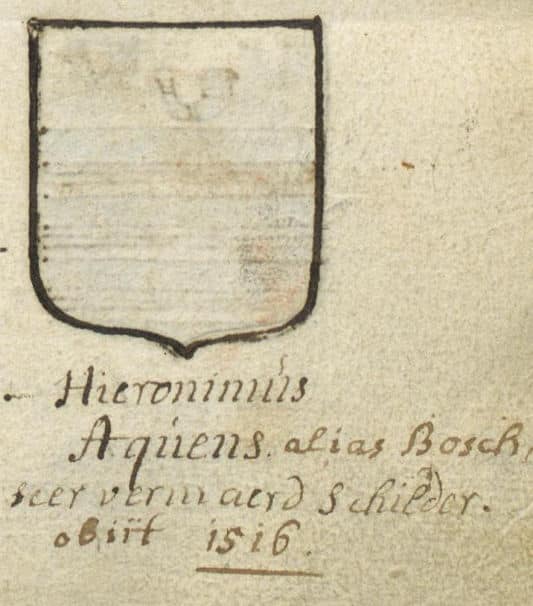 Hieronimús
Aqúens. alias Bosch,
seer vermaerd Schilder.
obiit 1516.